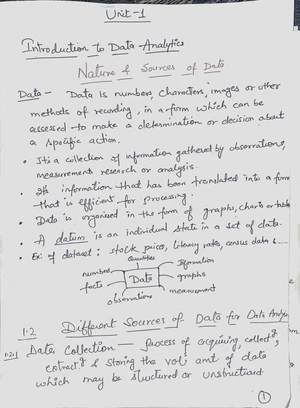 Unit-1
Introduction to Data-Analytics
Nature & Sources of Data
Data - Data is numbers, characters, images or other
methods of recording, in a form which can be
assessed to make a determination or decision about
a specific action.
• It is a collection of information gathered by observations,
measurements research or analysis.
• Its information that has been translated into a form
that is efficient for processing.
• Data is organised in the form of graphs, charts or tables
• A datum is an individual state in a set of data.
• Ex: of dataset: stock prices, literacy rates, census data &....
Quantities
numbers Information
facts Data graphs
observations measurement
1.2 Different Sources of Data for Data Analytics
1.2.1 Data Collection - process of acquiring, collect
extract & storing the vol. amt of data
which may be structured or unstructured
1